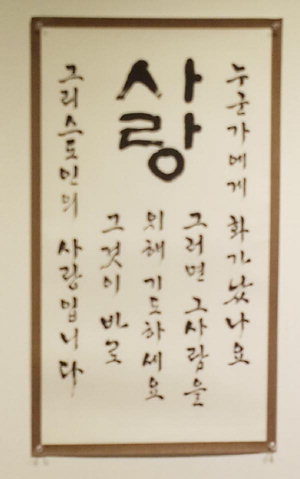 사랑
누군가에게 화가 났나요
그러면 그사람을
위해 기도하세요
그것이 바로
그리스도인의 사랑입니다